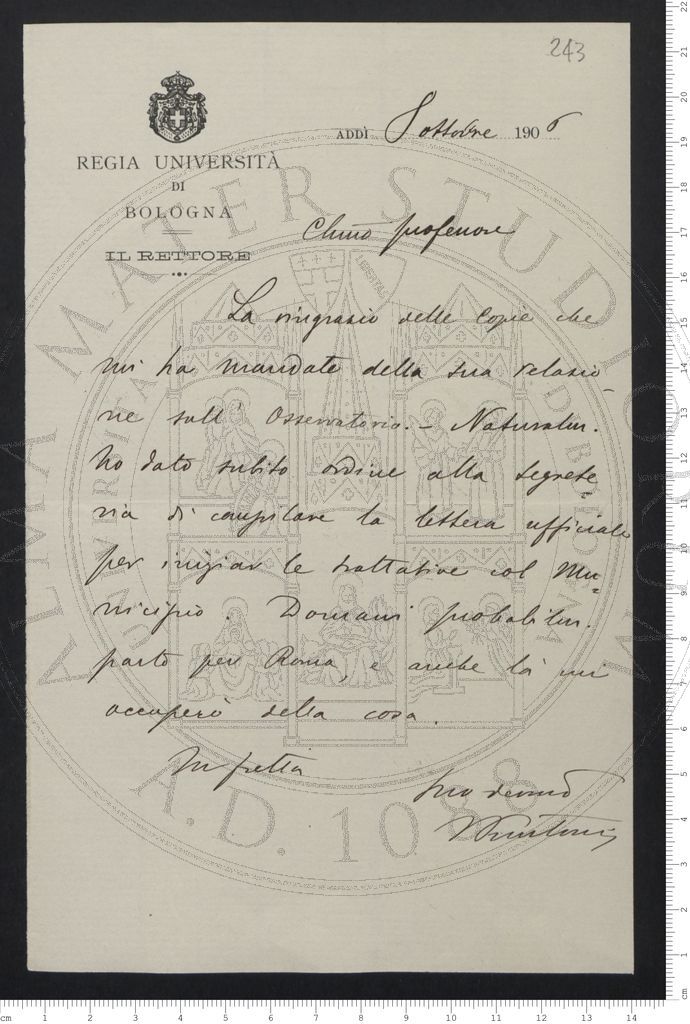 243
ADDÌ 8 ottobre 1906
REGIA UNIVERSITÀ
DI
BOLOGNA
IL RETTORE
Chmo professore
La ringrazio delle copie che
mi ha mandate della sua relazio-
ne sull' Osservatorio. - Naturalm.
ho dato subito ordine alla segrete-
ria di compilare la lettera ufficiale
per iniziar le trattative col Mu-
nicipio. Domani probabilm.
parto per Roma, e anche là mi
occuperò della cosa.
In fretta
Suo devmo
VPuntoni
ALMA MATER STUDIORUM
A.D. 1088